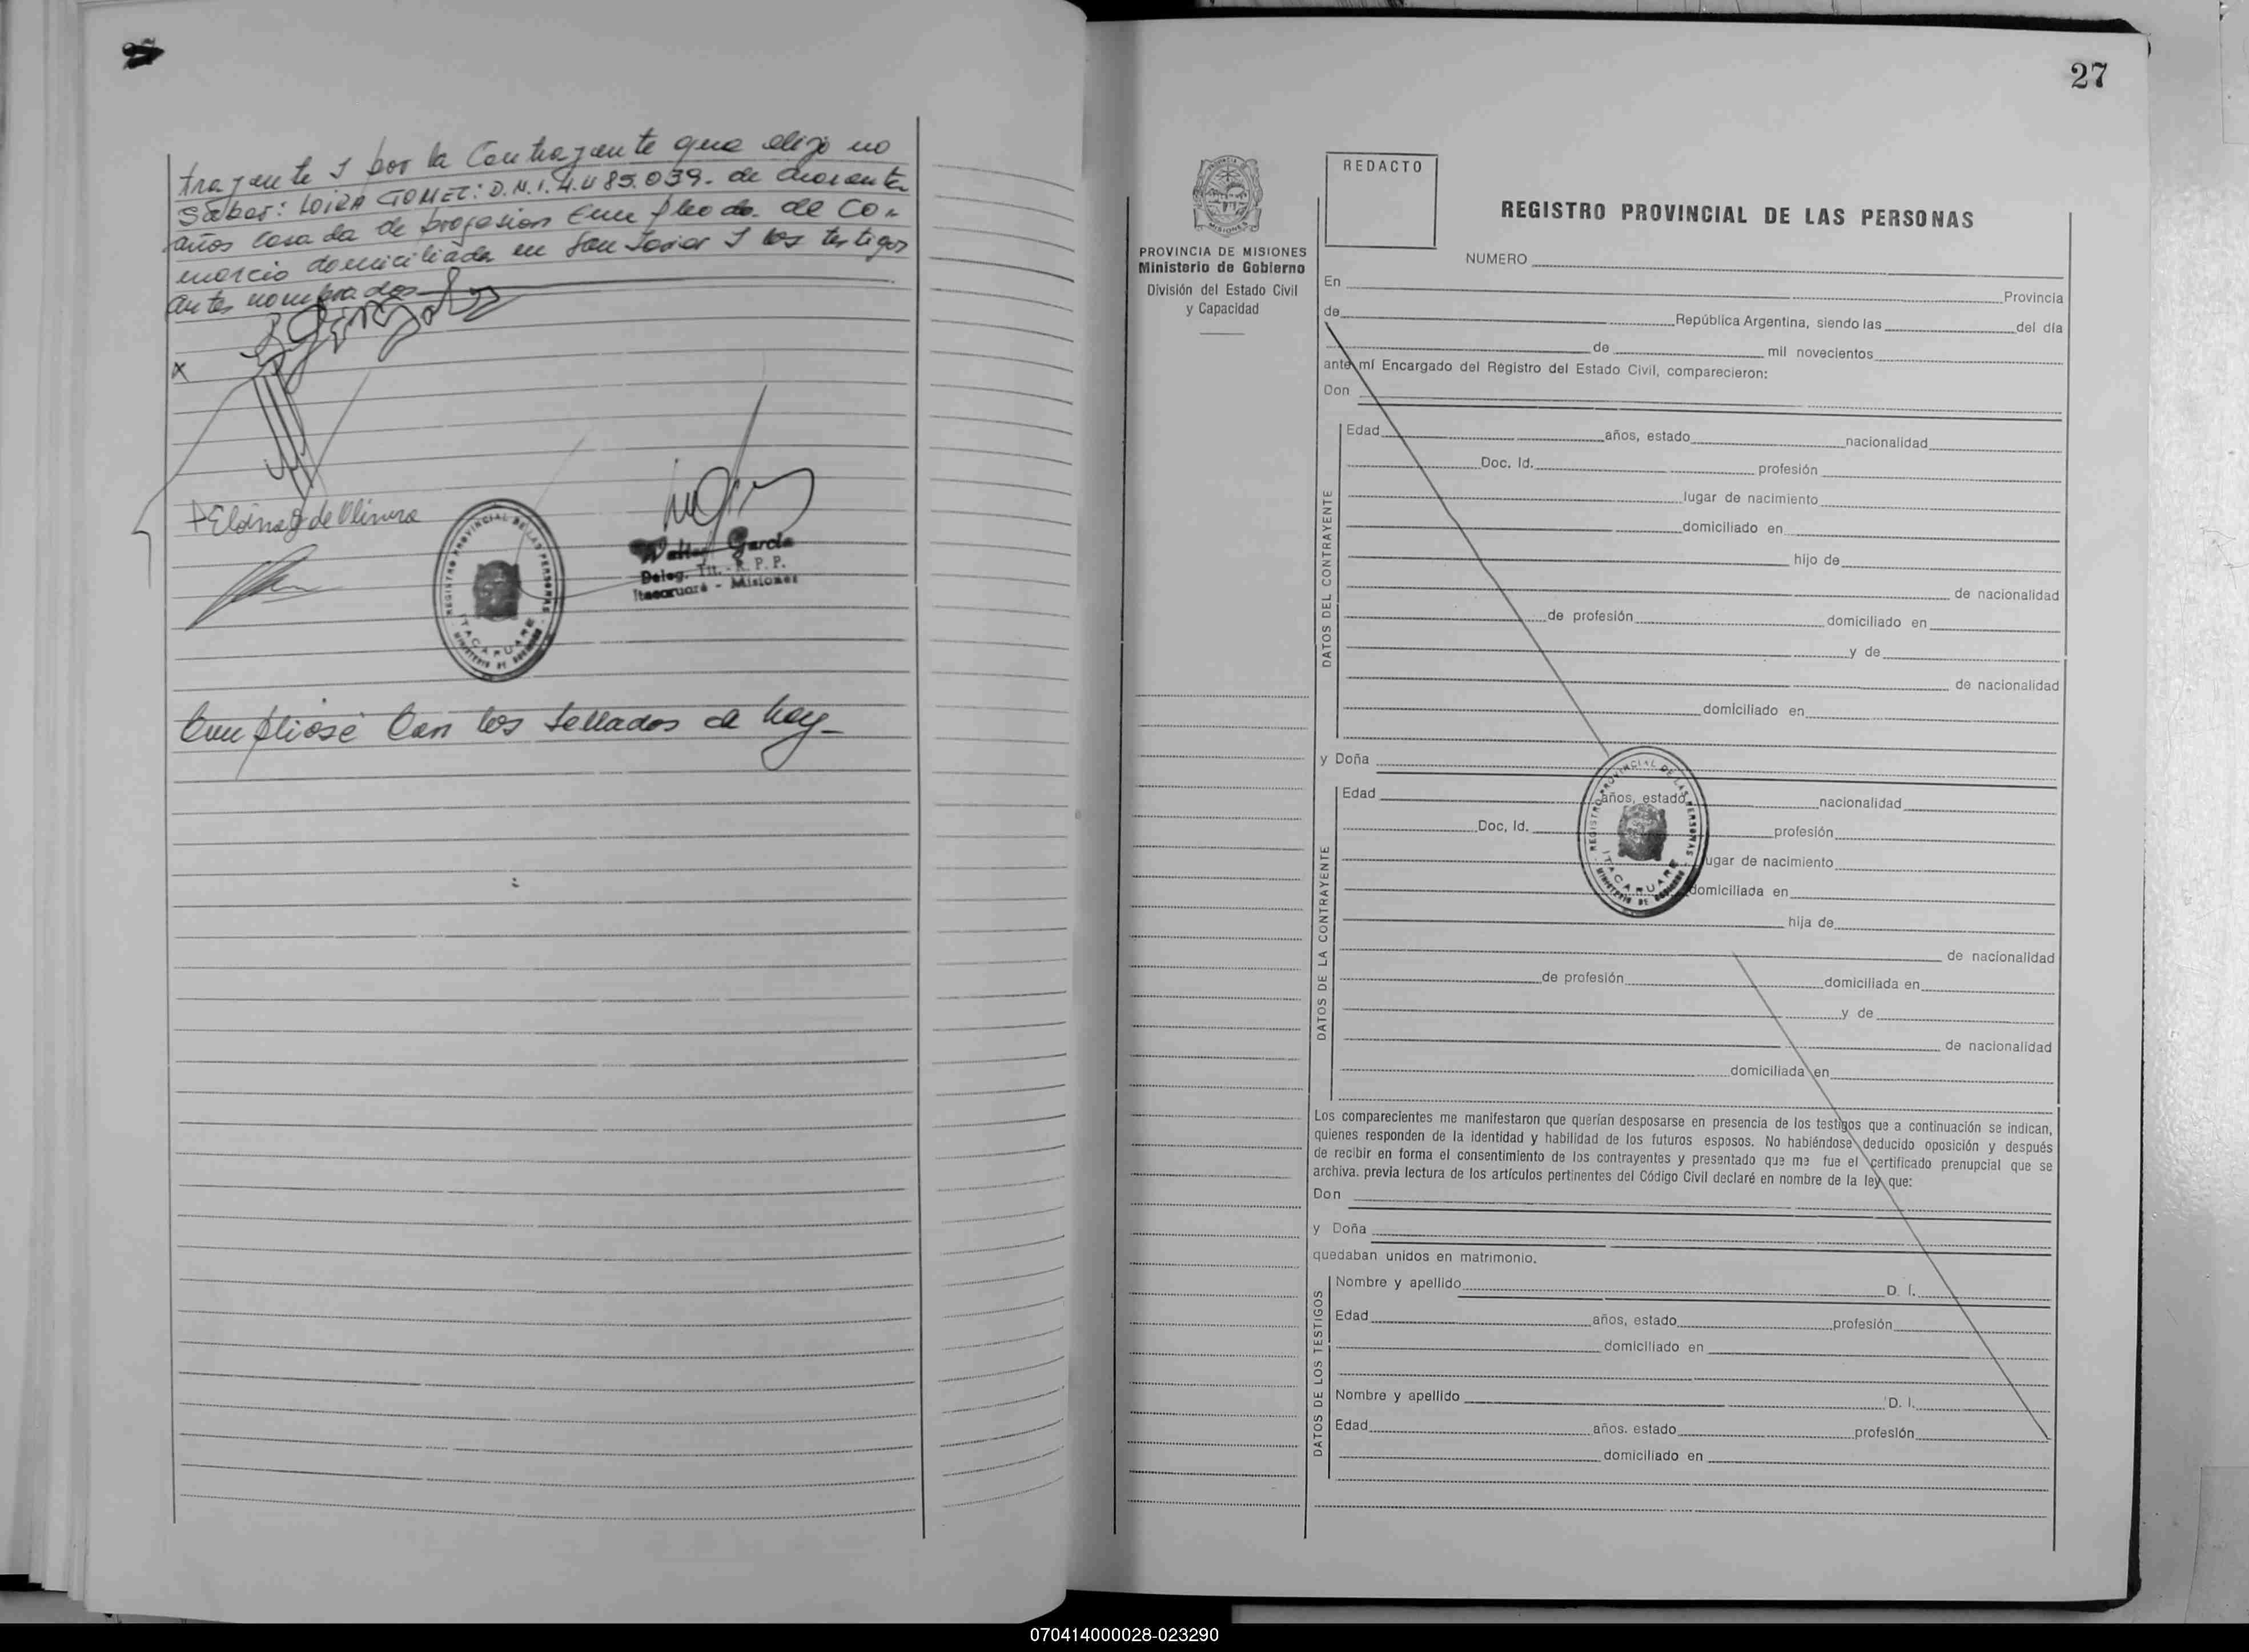 trayente y por la Contrayente que dijo no
saber: LOIRA GOMEZ: D.N.I. 4.
.039. de cuarenta
años casada de profesion Empleada de Co-
mercio domiciliada en San Javier y los testigos
antes nombrados
x
de Olivera
Walter García
Deleg. Tit. - R. P. P.
Itacaruaré - Misiones
REGISTRO PROVINCIAL DE LAS PERSONAS
ITACARUARE
MINISTERIO DE GOBIERNO
Cumpliose Con los Sellados de hoy-
27
REDACTO
REGISTRO PROVINCIAL DE LAS PERSONAS
PROVINCIA DE MISIONES
Ministerio de Gobierno
División del Estado Civil
y Capacidad
NUMERO
En
Provincia
de
República Argentina, siendo las
del día
de
mil novecientos
ante mí Encargado del Registro del Estado Civil, comparecieron:
Don
DATOS DEL CONTRAYENTE
Edad
años, estado
nacionalidad
Doc. Id.
profesión
lugar de nacimiento
domiciliado en
hijo de
de nacionalidad
de profesión
domiciliado en
y de
de nacionalidad
domiciliado en
y Doña
DATOS DE LA CONTRAYENTE
Edad
años, estado
nacionalidad
Doc, Id.
profesión
lugar de nacimiento
domiciliada en
hija de
de nacionalidad
de profesión
domiciliada en
y de
de nacionalidad
domiciliada en
REGISTRO PROVINCIAL DE LAS PERSONAS
ITACARUARE
MINISTERIO DE GOBIERNO
Los comparecientes me manifestaron que querían desposarse en presencia de los testigos que a continuación se indican,
quienes responden de la identidad y habilidad de los futuros esposos. No habiéndose deducido oposición y después
de recibir en forma el consentimiento de los contrayentes y presentado que me fue el certificado prenupcial que se
archiva. previa lectura de los artículos pertinentes del Código Civil declaré en nombre de la ley que:
Don
y Doña
quedaban unidos en matrimonio.
DATOS DE LOS TESTIGOS
Nombre y apellido
D. I.
Edad
años, estado
profesión
domiciliado en
Nombre y apellido
D. I.
Edad
años. estado
profesión
domiciliado en
070414000028-023290